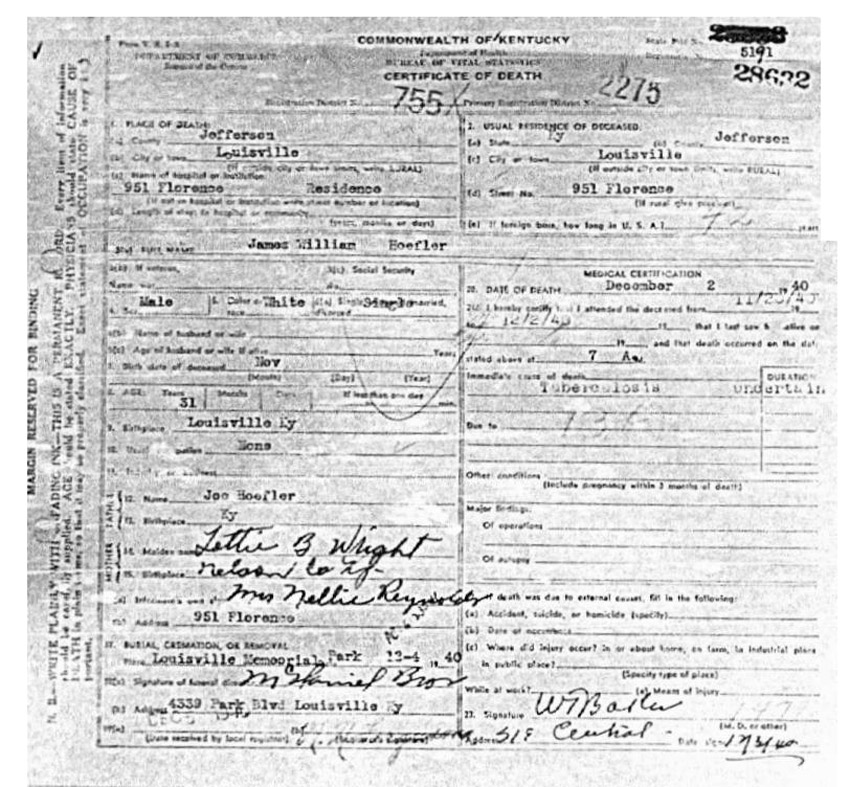 Form V. S. 1-A
DEPARTMENT OF COMMERCE
Bureau of the Census
COMMONWEALTH OF KENTUCKY
Department of Health
BUREAU OF VITAL STATISTICS
CERTIFICATE OF DEATH
State File No.
5191
28632
Registration District No. 755
Primary Registration District No. 2275
MARGIN RESERVED FOR BINDING
1. PLACE OF DEATH:
(a) County Jefferson
(b) City or town Louisville
(If outside city or town limits, write RURAL)
(c) Name of hospital or institution:
951 Florence Residence
(If not in hospital or institution write street number or location)
(d) Length of stay: In hospital or community
(years, months or days)
2. USUAL RESIDENCE OF DECEASED:
(a) State Ky (b) County Jefferson
(c) City or town Louisville
(If outside city or town limits, write RURAL)
(d) Street No. 951 Florence
(If rural give precinct)
(e) If foreign born, how long in U. S. A.? years
3(a) FULL NAME James William Hoefler
3(b) If veteran,
Name war
3(c) Social Security
No.
4. Sex Male 5. Color or race White 6(a) Single, married, divorced Single
6(b) Name of husband or wife
6(c) Age of husband or wife if alive Years
7. Birth date of deceased Nov
(Month) (Day) (Year)
8. AGE: Years 31 Months Days If less than one day min.
9. Birthplace Louisville Ky
10. Usual occupation None
11. Industry or business
FATHER
12. Name Joe Hoefler
13. Birthplace Ky
MOTHER
14. Maiden name Lettie B Wright
15. Birthplace Nelson Co Ky
16(a) Informant's own Mrs Nellie Reynolds
(b) Address 951 Florence
17. BURIAL, CREMATION, OR REMOVAL
Place Louisville Memorial Park 12-4 1940
18(a) Signature of funeral director McDaniel Bros
(b) Address 4339 Park Blvd Louisville Ky
19(a) (b)
(Date received by local registrar) (Registrar's signature)
MEDICAL CERTIFICATION
20. DATE OF DEATH December 2 1940
21. I hereby certify that I attended the deceased from 11/25/40 19
to 12/2/40 19 , that I last saw h alive on
19 , and that death occurred on the date
stated above at 7 A m.
Immediate cause of death
Tuberculosis
DURATION
Uncertain
Due to
Other conditions
(Include pregnancy within 3 months of death)
Major findings:
Of operations
Of autopsy
If death was due to external causes, fill in the following:
(a) Accident, suicide, or homicide (specify)
(b) Date of occurrence
(c) Where did injury occur? In or about home, on farm, in industrial place
in public place?
(Specify type of place)
While at work? (e) Means of injury
23. Signature
(M. D. or other)
Address Central Date signed 12/3/40